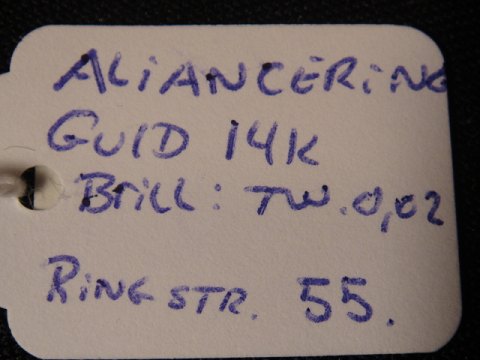 ALiANCERiNG
GUlD 14K
Brill: TW. 0,02
RiNG STR. 55.